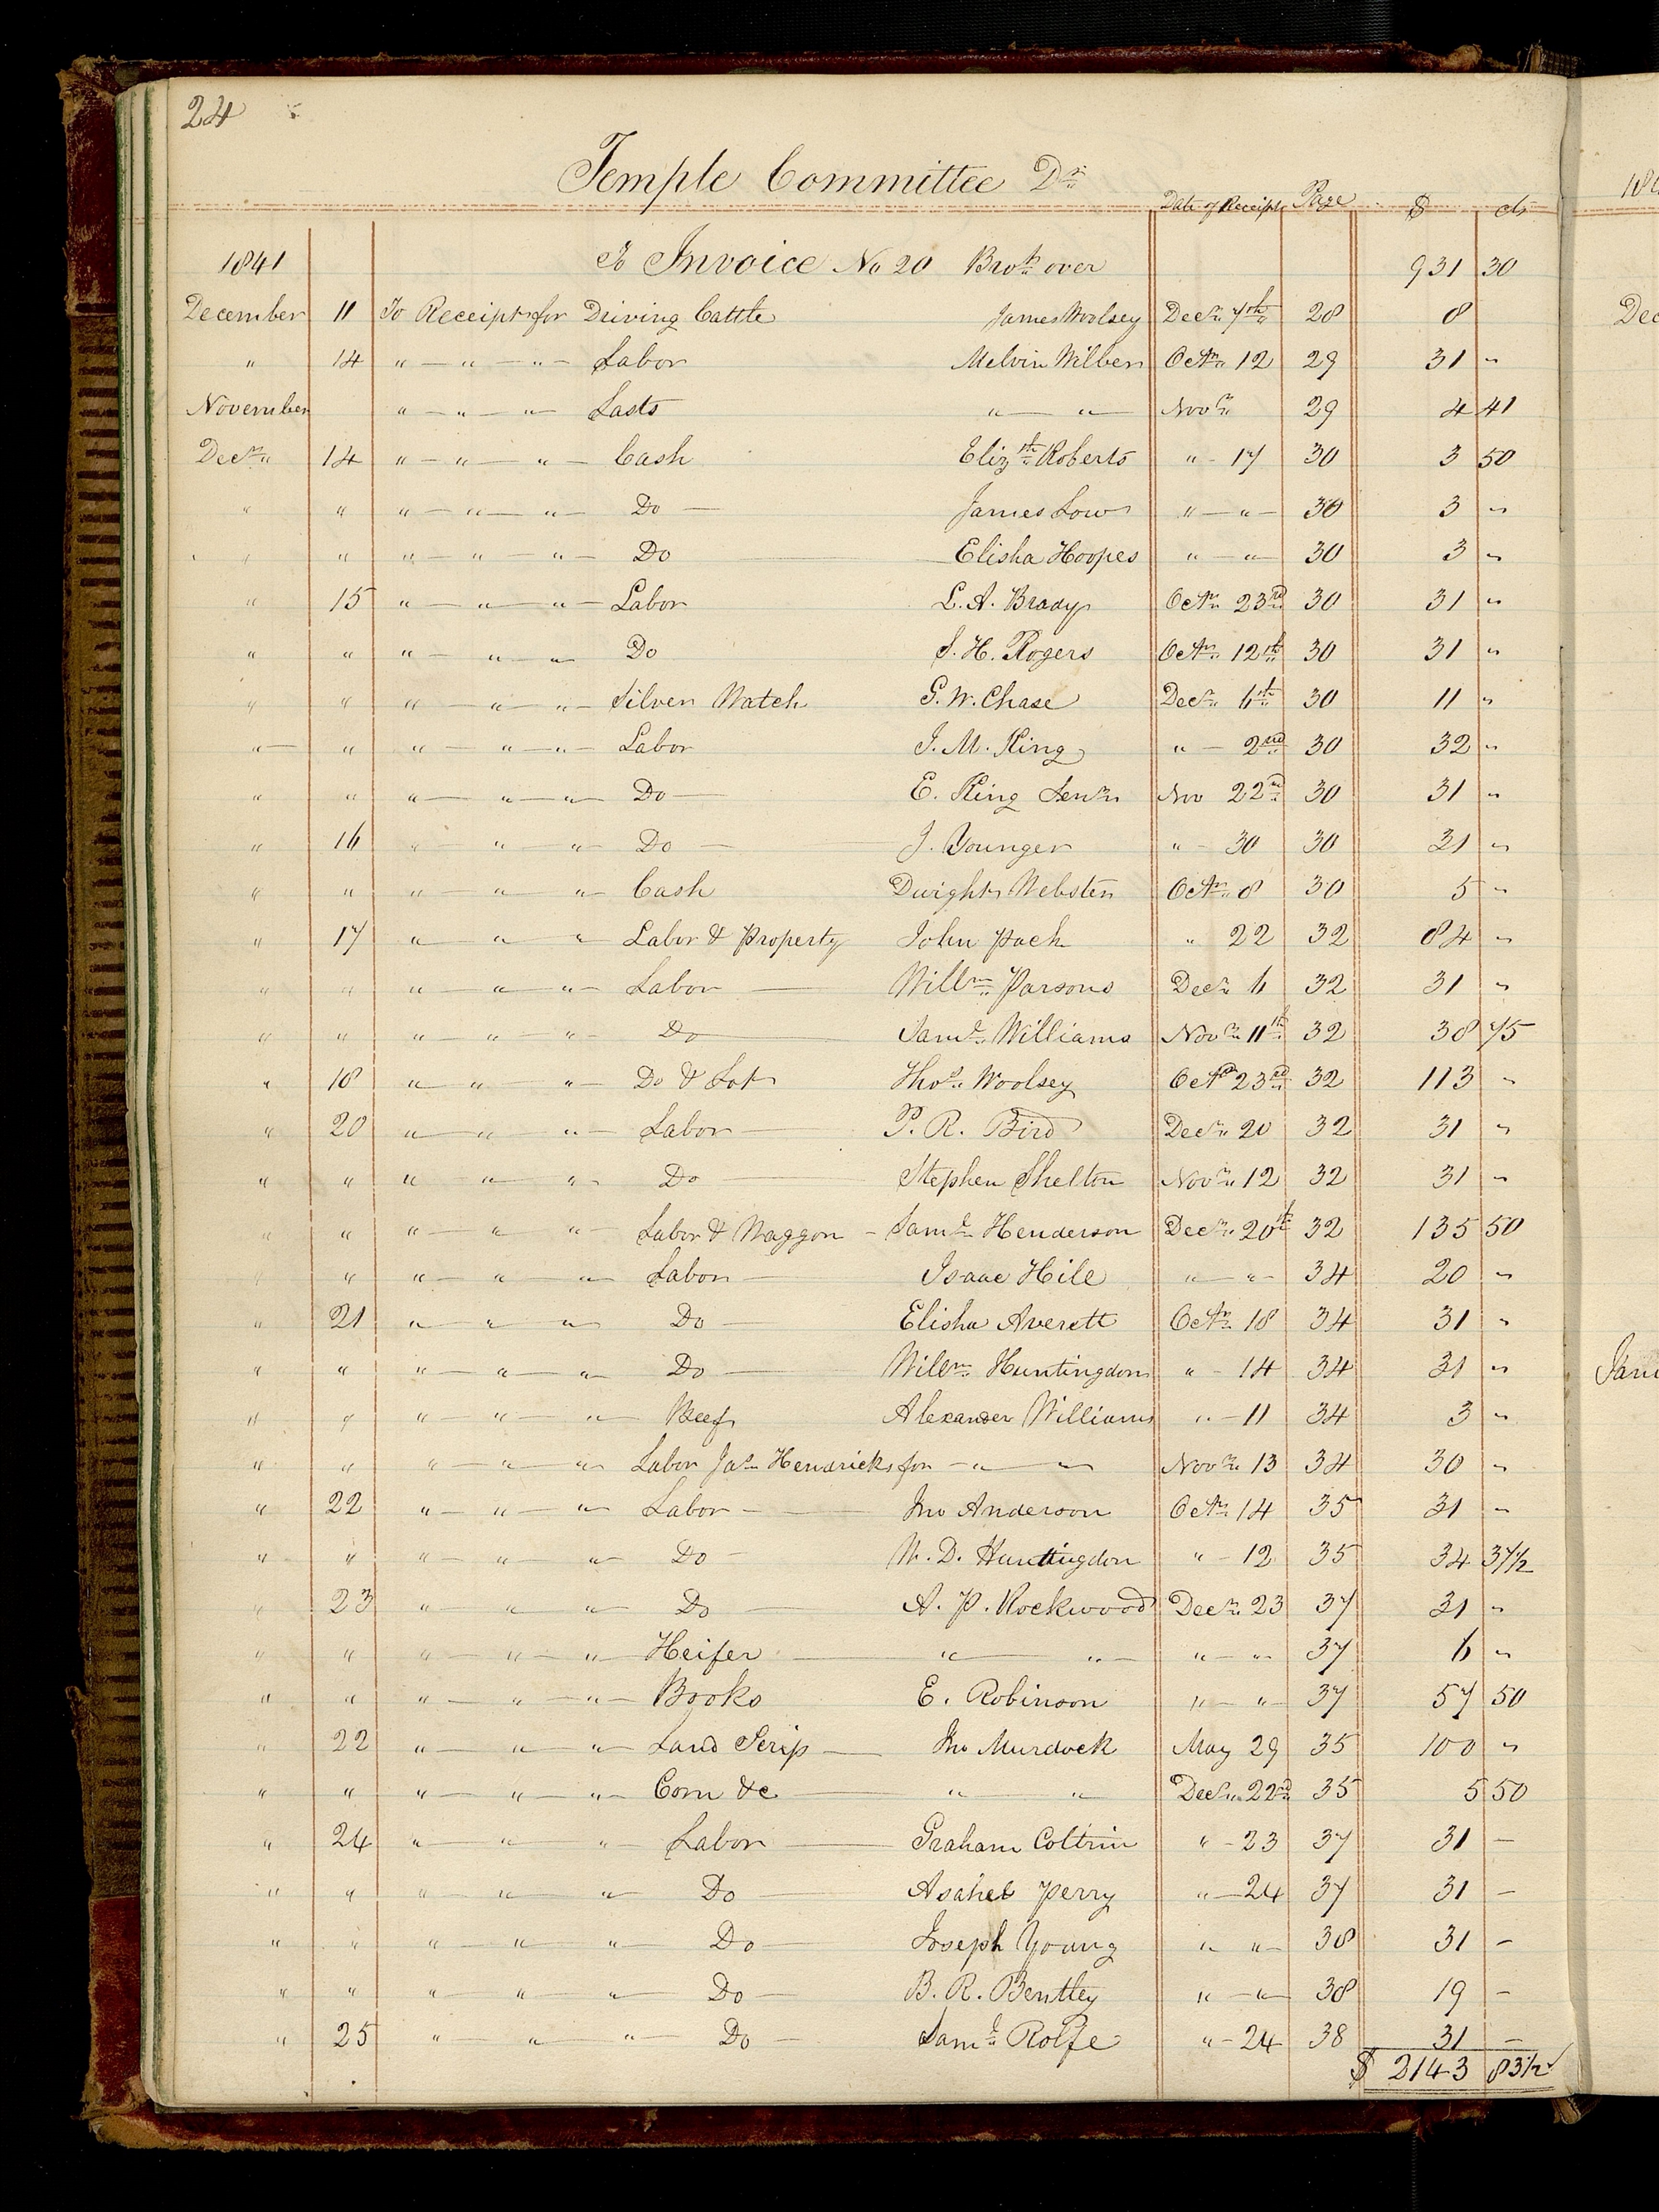 24
Temple Committee Dr.
Date of Receipt Page $ cts
1841 To Invoice No 20 Brot. over 931 30
December 11 To Receipt for Driving Cattle James Woolsey Decr. 7th 28 8
" 14 " — " — " — Labor Melvin Wilber Octr. 12 29 31 "
November " — " — " — Lasts " — " — Novr. 29 4 41
Decr. 14 " — " — " — Cash Elizth. Roberts " - 17 30 3 50
" " " — " — " — Do — James Low " — " — 30 3 "
" " " — " — " — Do Elisha Hoopes " — " — 30 3 "
" 15 " — " — " — Labor L. A. Brady Octr. 23rd 30 31 "
" " " — " — " Do S. H. Rogers Octr. 12th 30 31 "
" " " — " — " — Silver Watch G. W. Chase Decr. 6th 30 11 "
" — " " — " — " — Labor J. M. King " — 2nd 30 32 "
" " " — " — " — Do — E. King Senr. Nov 22nd 30 31 "
" 16 " — " — " — Do — J. Younger " - 30 30 31 "
" " " — " — " — Cash Dwight Webster Octr. 8 30 5 "
" 17 " — " — " — Labor & Property John Pack " 22 32 84 "
" " " — " — " — Labor — Willm. Parsons Decr. 6 32 31 "
" " " — " — " — Do — Saml. Williams Novr. 11th 32 38 75
" 18 " — " — " — Do & Lot Thos. Woolsey Octr 23rd 32 113 "
" 20 " — " — " — Labor — P. R. Bird Decr. 20 32 31 "
" " " — " — " — Do — Stephen Shelton Novr. 12 32 31 "
" " " — " — " — Labor & Waggon - Saml. Henderson Decr. 20th 32 135 50
" " " — " — " — Labor — Isaac Hile " — " — 34 20 "
" 21 " — " — " — Do — Elisha Averett Octr. 18 34 31 "
" " " — " — " — Do — Willm. Huntingdon " - 14 34 31 "
" " " — " — " — Beef Alexander Williams " - 11 34 3 "
" " " — " — " — Labor Jas. Hendricks for — " — " Novr. 13 34 30 "
" 22 " — " — " — Labor — Jno Anderson Octr. 14 35 31 "
" " " — " — " — Do — W. D. Huntingdon " - 12 35 34 37½
" 23 " — " — " — Do — A. P. Rockwood Decr. 23 37 31 "
" " " — " — " — Heifer — " — " — " — " — 37 6 "
" " " — " — " — Books E. Robinson " — " — 37 57 50
" 22 " — " — " — Land Scrip — Jno Murdock May 29 35 100 "
" " " — " — " — Corn &c — " — " Decr. 22nd 35 5 50
" 24 " — " — " Labor — Graham Coltrin " - 23 37 31 —
" " " — " — " — Do — Asahel Perry " — 24 37 31 —
" " " — " — " — Do — Joseph Young " " — 38 31 —
" " " — " — " — Do — B. R. Bentley " — " — 38 19 —
" 25 " — " — " — Do — Saml. Rolfe " - 24 38 31 —
$ 2143 83½